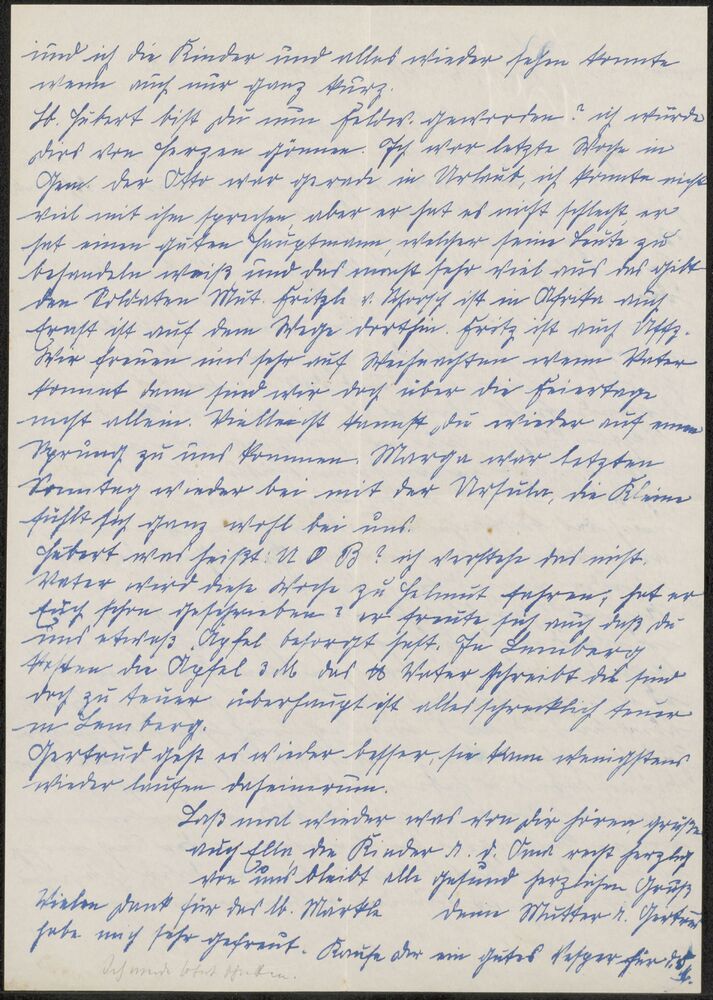 und ich die Kinder und alles wieder sehen konnte
wenn auch nur ganz kurz.
Lb. Hubert bist du nun Feldw. geworden? ich würde
dirs von Herzen gönnen. Ich war letzte Woche in
Gem. der Otto war gerade in Urlaub, ich konnte nicht
viel mit ihm sprechen aber er hat es nicht schlecht, er
hat einen guten Hauptmann, welcher seine Leute zu
behandeln weiß und das macht sehr viel aus das gibt
den Soldaten Mut. Fritzle v. ist in Afrika auch
Ernst ist auf dem Wege dorthin. Fritz ist auch Uffz.
Wir freuen uns sehr auf Weihnachten wenn Vater
kommt dann sind wir doch über die Feiertage
nicht allein. Vielleicht kannst du wieder auf einen
Sprung zu uns kommen. Marga war letzten
Sonntag wieder bei mit der Ursula, die Kleine
fühlt sich ganz wohl bei uns.
Hubert was heißt: U O B? ich verstehe das nicht.
Vater wird diese Woche zu Helmut fahren, hat er
Euch schon geschrieben? er freute sich auch daß du
uns etwas Äpfel besorgt hast. In Lemberg
kosten die Äpfel 3 M das ℔ Vater schreibt das sind
doch zu teuer überhaupt ist alles schrecklich teuer
in Lemberg.
Gertrud geht es wieder besser, sie kann wenigstens
wieder laufen daheimrum.
Laß mal wieder was von dir hören, grüße
auch Ella, die Kinder u. d. Oma recht herzlich
von uns bleibt alle gesund herzlichen Gruß
Vielen Dank für das lb. Märkle deine Mutter u. Gertrud
habe mich sehr gefreut. Kaufe dir ein gutes Vesper für d. 5 M.